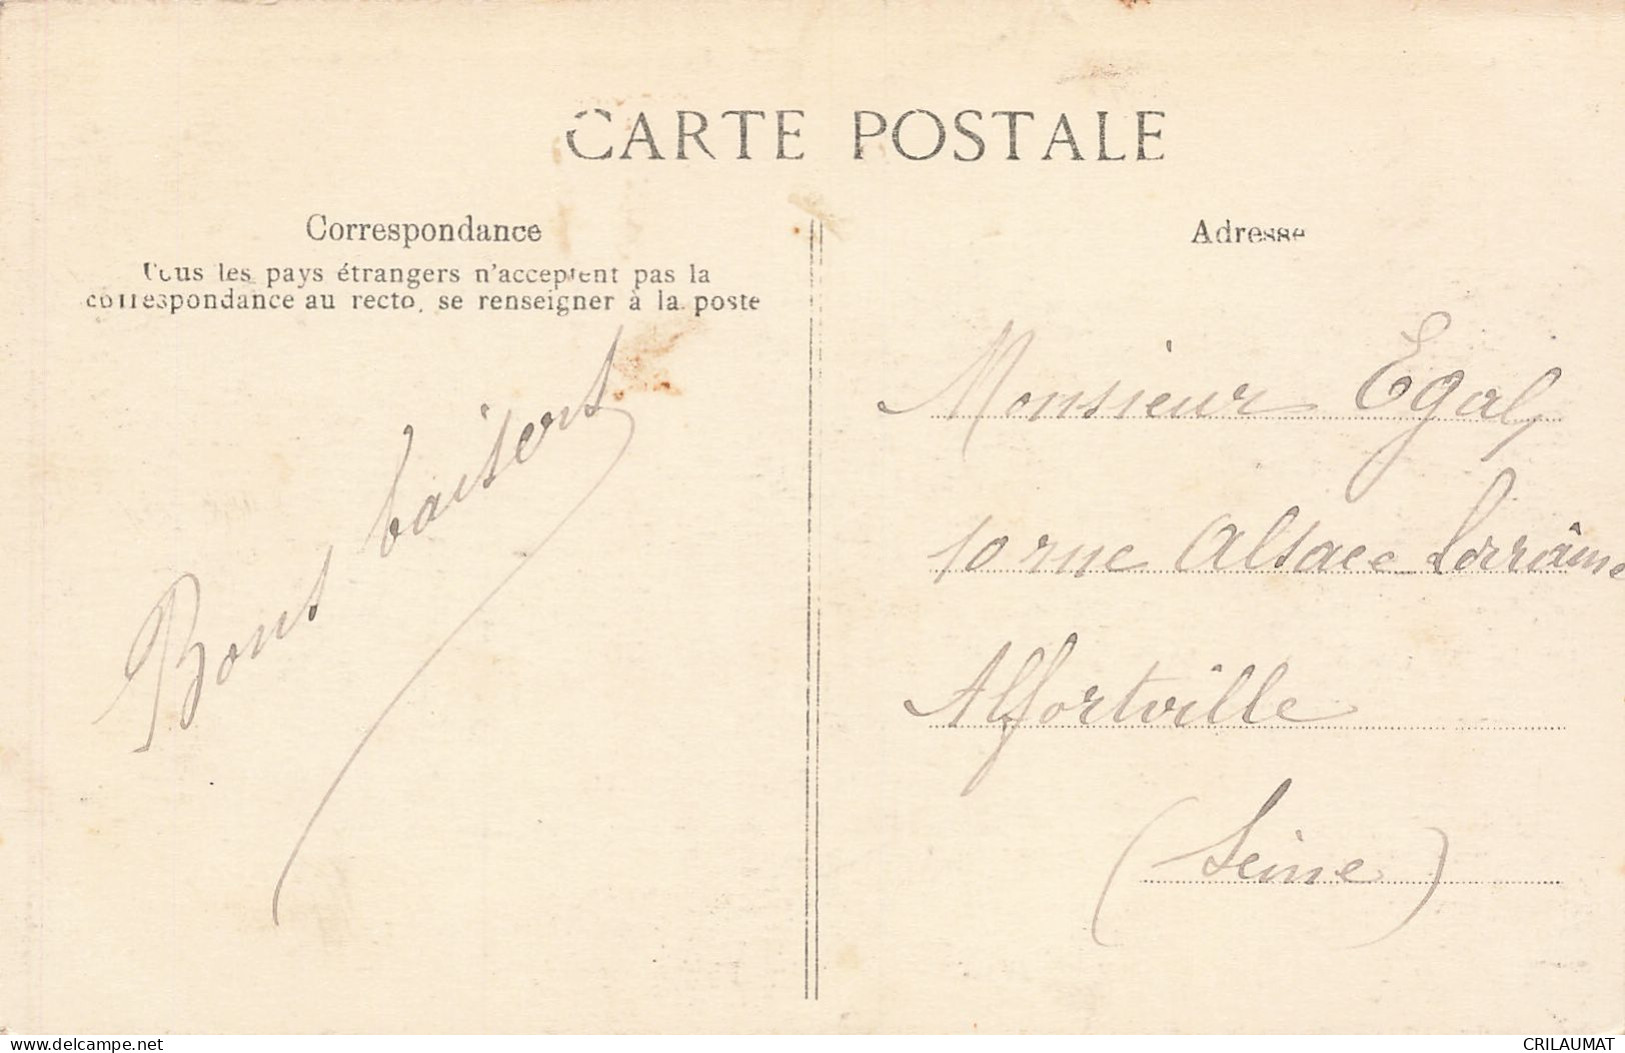 CARTE POSTALE
Correspondance
Tous les pays étrangers n'acceptent pas la
correspondance au recto, se renseigner à la poste
Bons baisers
Adresse
Monsieur Egal
10 rue Alsace Lorraine
Alfortville
(Seine)
www.delcampe.net
CRILAUMAT